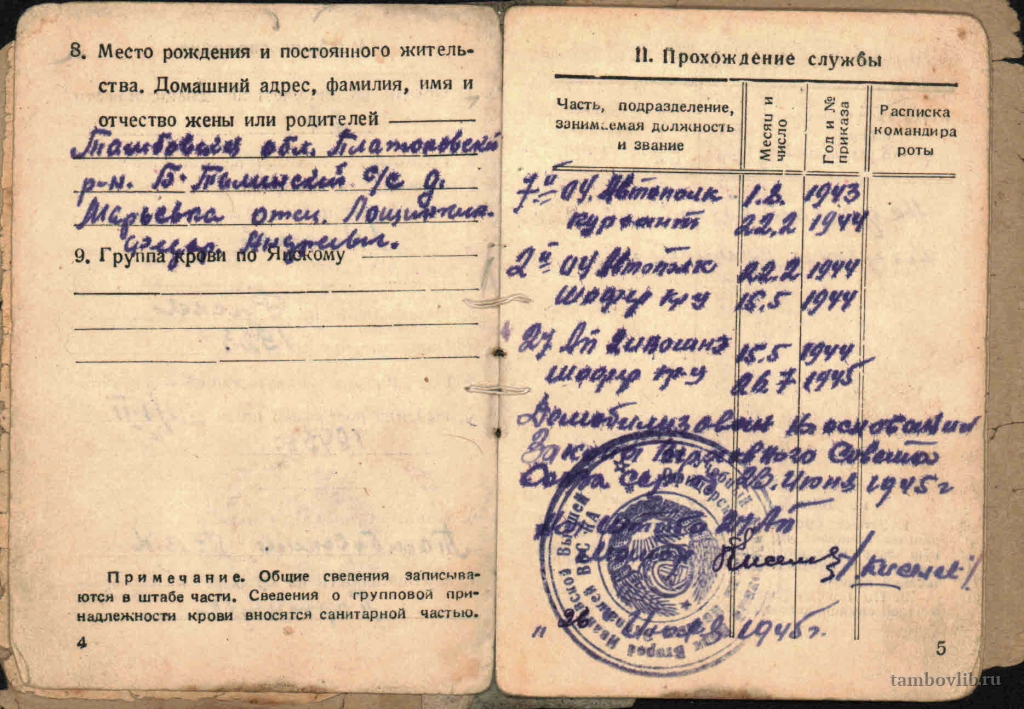 8. Место рождения и постоянного житель-
ства. Домашний адрес, фамилия, имя и
отчество жены или родителей
Тамбовская обл. Платоновский
р-н. Б-Талинский с/с д.
Марьевка отец Лощинкин
Андреевич.
9. Группа крови по Янскому
Примечание. Общие сведения записыва-
ются в штабе части. Сведения о групповой при-
надлежности крови вносятся санитарной частью.
4
II. Прохождение службы
Часть, подразделение,
занимаемая должность
и звание
Месяц и
число
Год и №
приказа
Расписка
командира
роты
7й ОУ. Автополк 1.8. 1943
курсант 22.2 1944
2й ОУ Автополк 22.2 1944
шофер кр-ц 15.5 1944
27 Ап 15.5 1944
шофер кр-ц 26.7 1945
Демобилизован на основании
Закона Верховного Совета
Союза ССР от 23. Июня 1945 г
27 Ап
"26" 1945 г.
5
tambovlib.ru